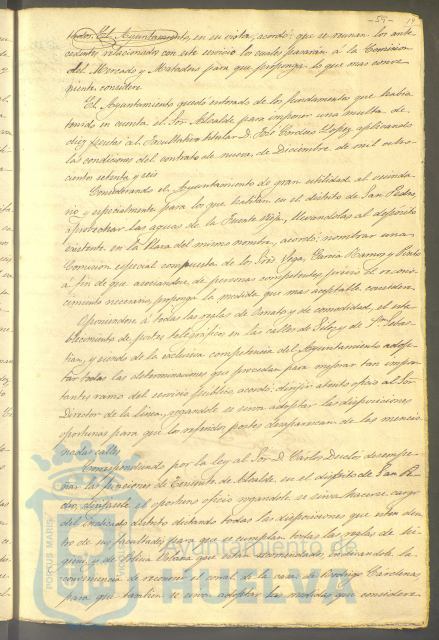 - 59 - 19
tador. El Ayuntamiento, en su vista, acordó: que se reunan los ante
cedentes relacionados con este servicio los cuales pasarán a la Comision
del Mercado y Matadero para que proponga lo que mas conve
niente considere.
El Ayuntamiento quedó enterado de los fundamentos que habia
tenido en cuenta el Sor. Alcalde para imponer una multa de
diez pesetas al Facultativo titular D. José Cordero Lopez, aplicando
las condiciones del contrato de nueve de Diciembre de mil ocho
cientos setenta y seis
Considerando el Ayuntamiento de gran utilidad al vecinda
rio y especialmente para los que habitan en el distrito de San Pedro,
aprovechar las aguas de la Fuente vieja, llevandolas al depósito
existente en la Plaza del mismo nombre, acordó: nombrar una
Comision especial compuesta de los Sres. Vega, Garcia Ramos y
á fin de que asociandose de personas competentes, previo el recono
cimiento necesario, proponga la medida que mas aceptable considere.
Oponiendose á todas las reglas de Ornato y de comodidad, el esta
blecimiento de postes telegráficos en las calles de y de Sn. Sebas
tian, y siendo de la exclusiva competencia del Ayuntamiento adop
tar todas las determinaciones que procedan para mejorar tan impor
tantes ramo del servicio público, acordó: dirijir atento oficio al Sor.
Director de la linea, rogandole se sirva adoptar las disposiciones
oportunas para que los referidos postes desaparezcan de las mencio
nadas calles.
Correspondiendo por la ley al Sor. D. Carlos Duclós desempe
ñar las funciones de Teniente de Alcalde en el distrito de San Pe
dro, el oportuno oficio rogandole se sirva hacerse cargo
del indicado distrito dictando todas las disposiciones que esten den
tro de sus facultades para que se cumplan todas las reglas de hi
giene y de Policia Urbana que estan, indicandole la
conveniencia de reconocer el canal de la casa de Rodrigo Cárdenas,
para que tambien se sirva adoptar las medidas que considere
PORTUS MARIS
Ayuntamiento de
HUELVA